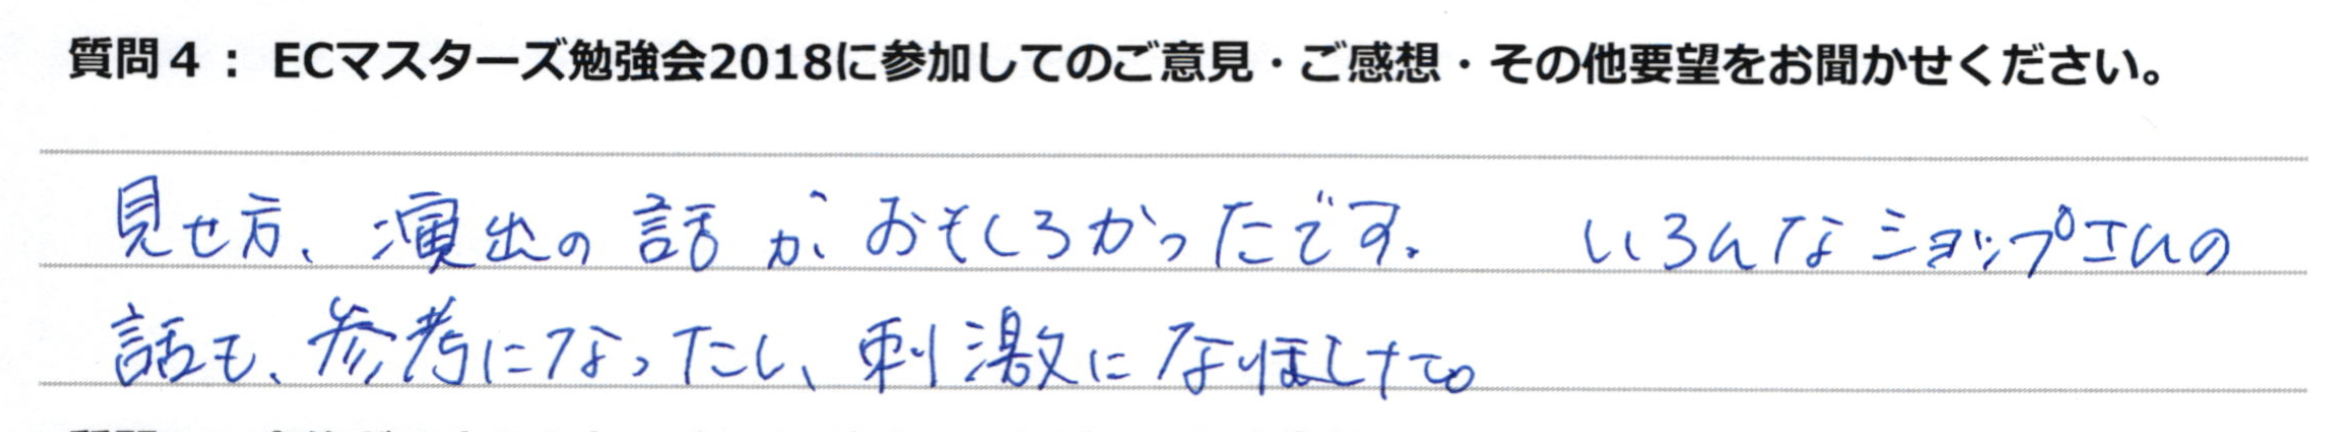 質問４： ECマスターズ勉強会2018に参加してのご意見・ご感想・その他要望をお聞かせください。
見せ方、演出の話が、おもしろかったです。 いろんなショップさんの
話も、参考になったし、刺激になりました。